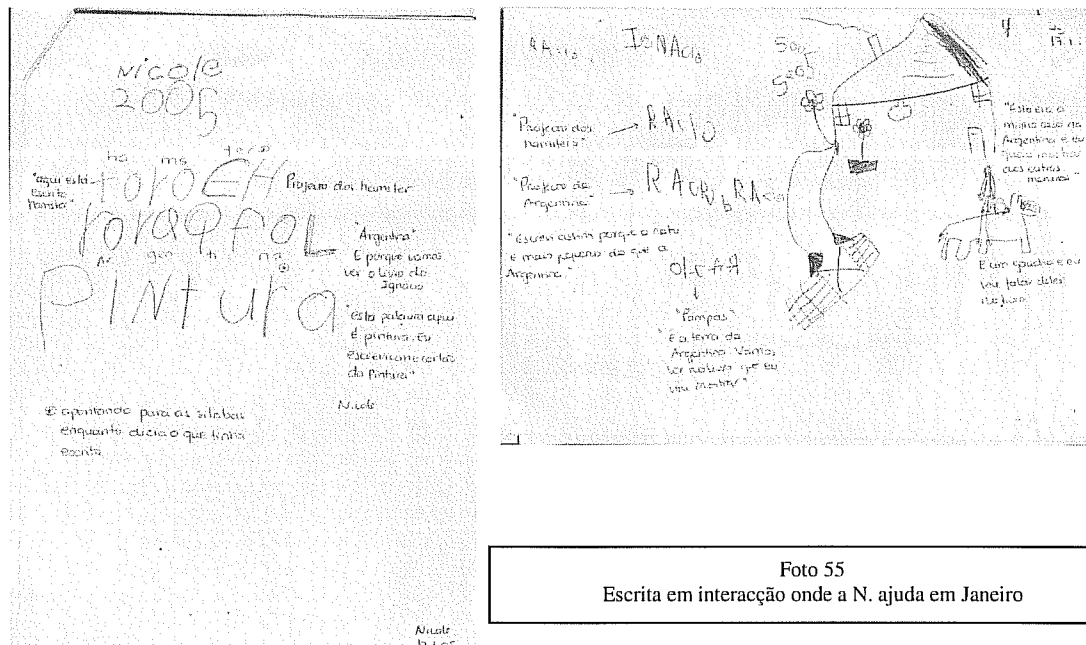 Nicole
2005
ha ms tero
"aqui está
escrito
hamster"
roroEH
Projecto dos hamster
roraqfoL
Ar gen ti na
"Argentina"
É porque vamos
ver o livro do
Ignácio
PINtura
"Esta palavra aqui
é pintura. Eu
escrevi com cartões
da Pintura"
Nicole
⊕ apontando para as sílabas
enquanto dizia o que tinha
escrito
Nicole
IGNAcio
500
500
4
17.1.
"Projecto dos
hamsters" → RAcIO
"Projecto da
Argentina" →
"Escrevi assim porque o rato
é mais pequeno do que a
Argentina."
OICAA
"Pampas"
"É a terra da
Argentina. Vamos
ver no livro que eu
vou mostrar"
"Esta era a
minha casa na
Argentina e eu
quero mostrar
aos outros
meninos"
É um gaucho e eu
vou falar deles
no livro
Foto 55
Escrita em interacção onde a N. ajuda em Janeiro